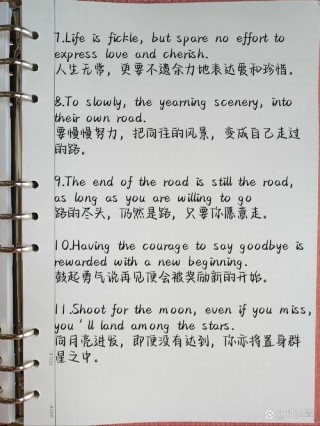 7.Life is fickle, but spare no effort to
express love and cherish.
人生无常，更要不遗余力地表达爱和珍惜。
8.To slowly, the yearning scenery, into
their own road.
要慢慢努力，把向往的风景，变成自己走过
的路。
9.The end of the road is still the road,
as long as you are willing to go
路的尽头，仍然是路，只要你愿意走。
10.Having the courage to say goodbye is
rewarded with a new beginning.
鼓起勇气说再见便会被奖励新的开始。
11.Shoot for the moon, even if you miss,
you'll land among the stars.
向月亮进发，即便没有达到，你亦将置身群
星之中。
TITLE
DATE